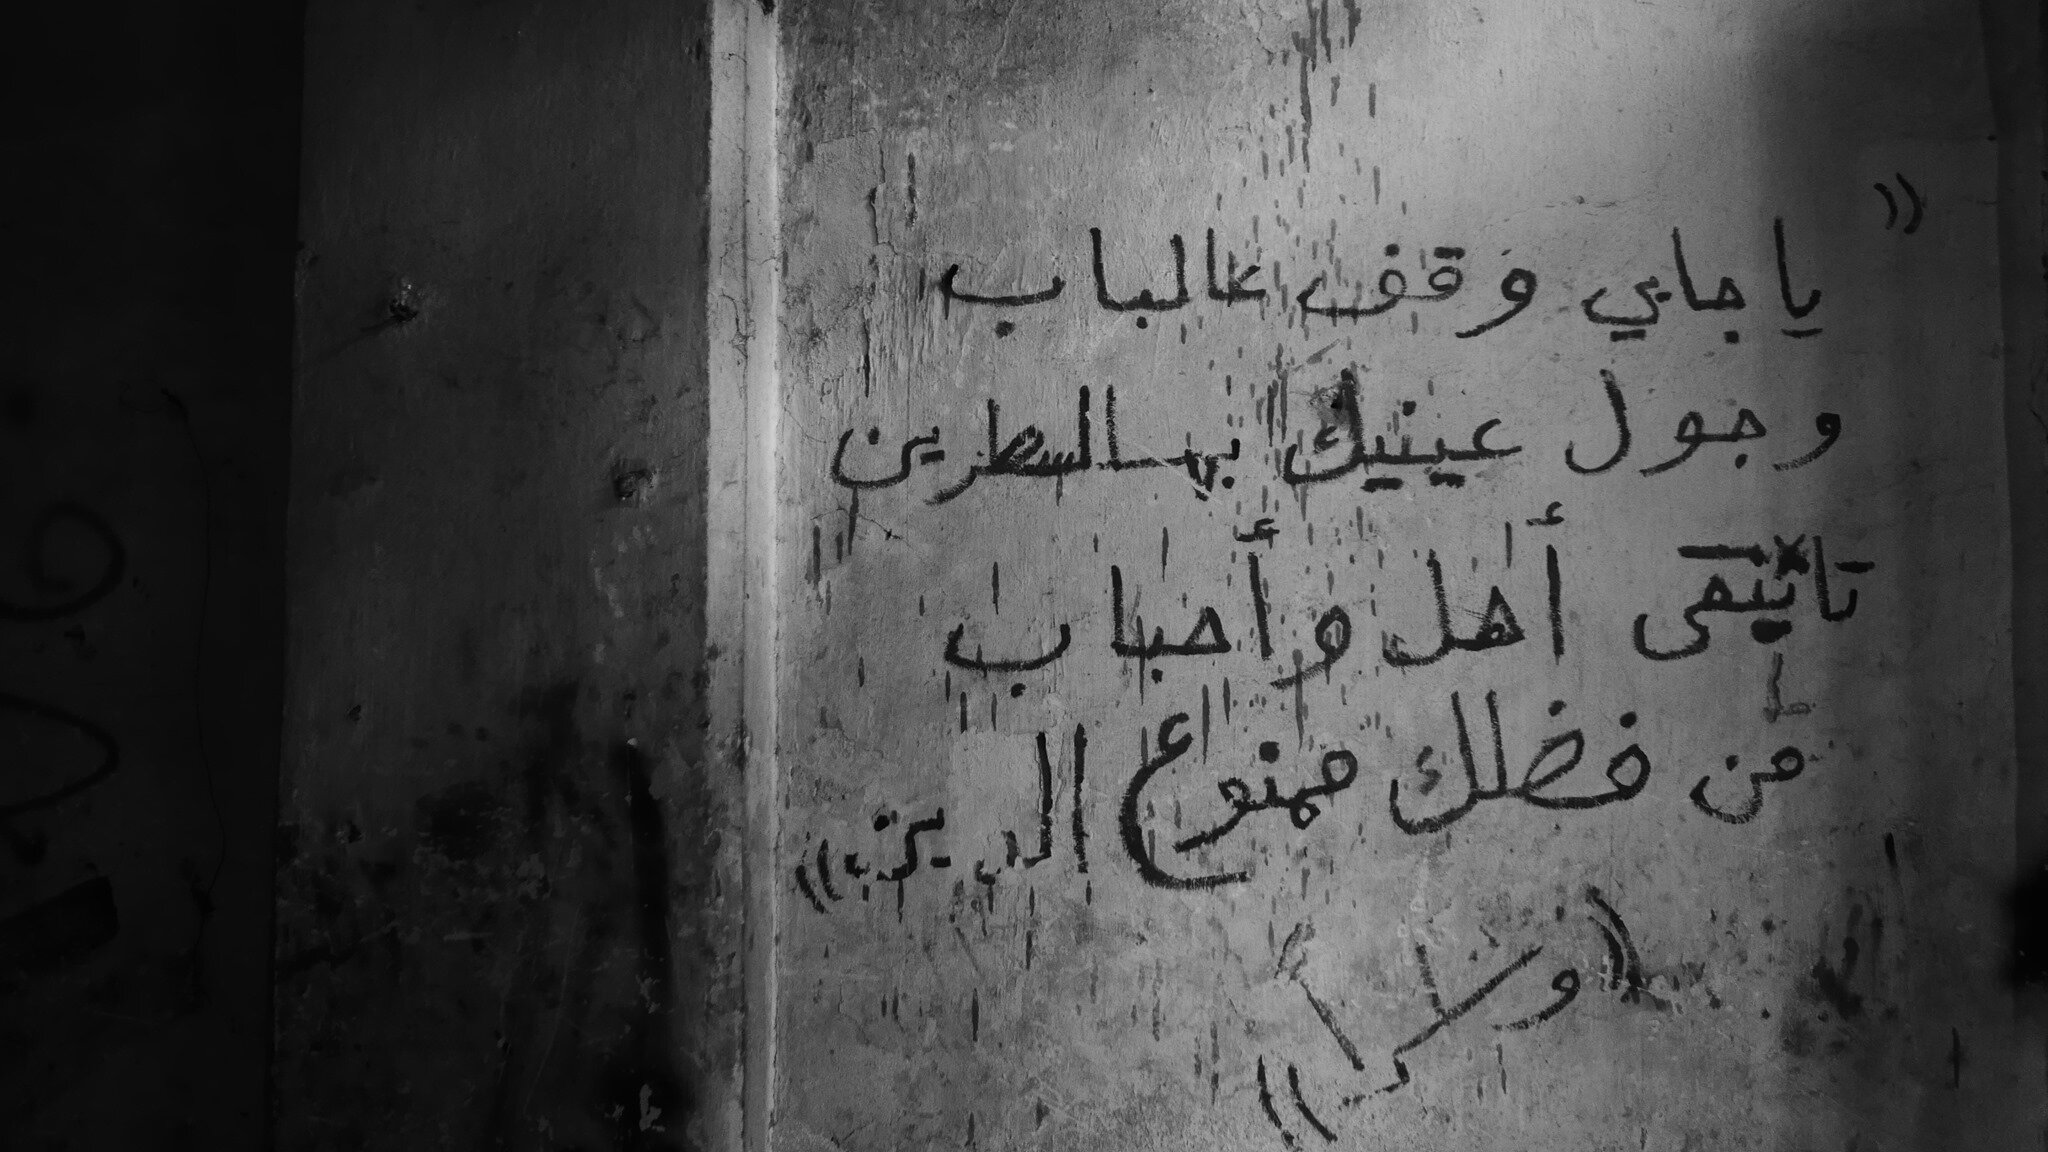 "يا جايي وقف عالباب
وجول عينيك بهالسطرين
تانبقى أهل وأحباب
من فضلك ممنوع الدين"
"وشكراً"